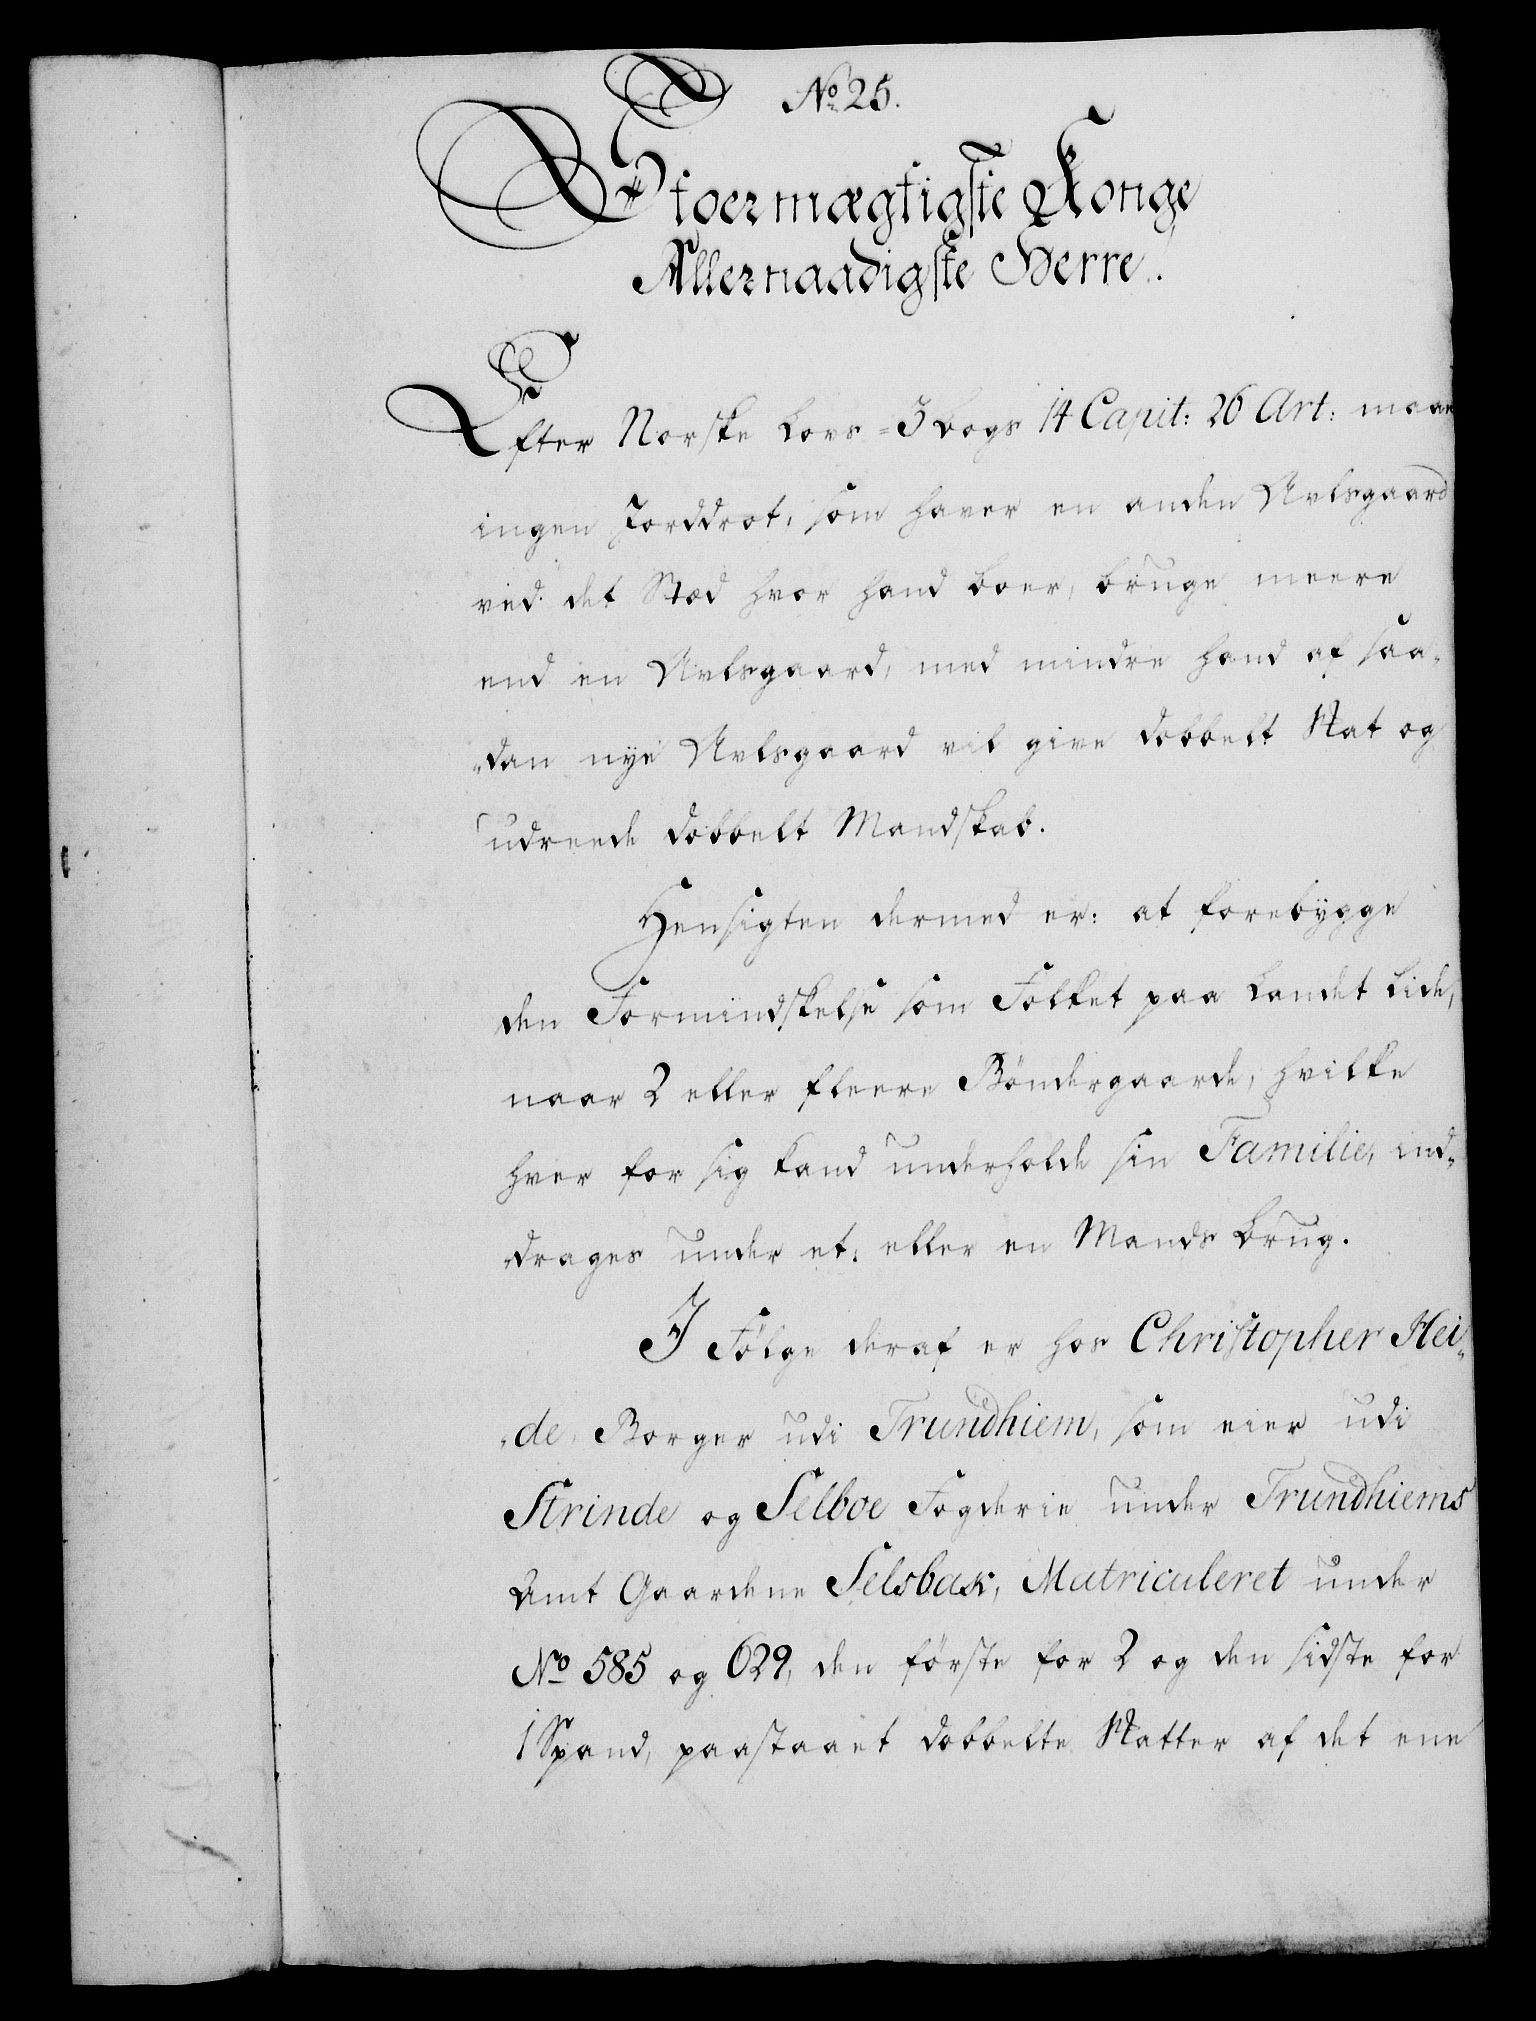 No 25.
Stoermægtigste Konge
Allernaadigste Herre!
Efter Norske Lovs=3 Bogs 14 Capit: 26 Art: maae
ingen Jorddrot, som haver en anden Avlsgaard
ved det Stæd hvor hand boer, bruge meere
end en Avlsgaard, med mindre hand af saa„
„dan nye Avlsgaard vil give dobbelt Skat og
udreede dobbelt Mandskab.
Hensigten dermed er: at forebygge
den Formindskelse som Folket paa Landet lide,
naar 2 eller fleere Böndergaarde, hvilke
hver for sig kand underholde sin Familie, ind„
„drages under et, eller en Mands Brug.
I Fölge deraf er hos Christopher Hei„
„de, Borger udi Trundhiem, som eier udi
Strinde og Selboe Fogderie under Trundhiems
Amt Gaardene Selsbak, Matriculeret under
No 585 og 629, den förste for 2 og den sidste for
1 Spand, paastaaet dobbelte Skatter af det ene